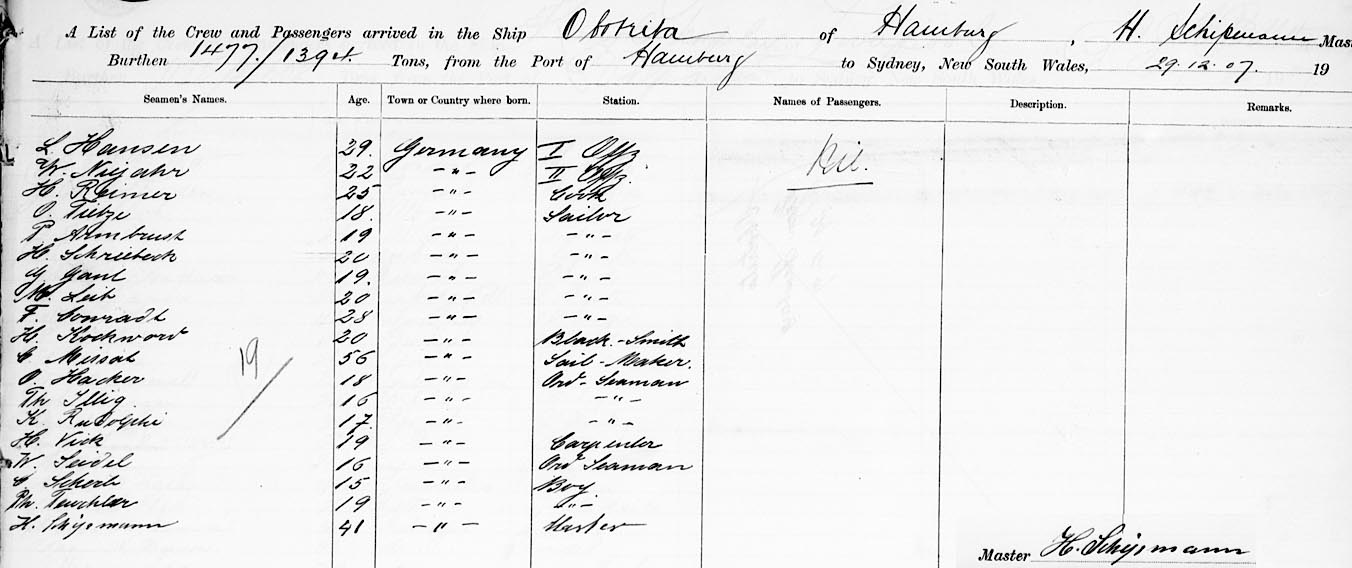 A List of the Crew and Passengers arrived in the Ship Obotrita of Hamburg, H. Schipmann Mas
Burthen 1477/1394 Tons, from the Port of Hamburg to Sydney, New South Wales, 29.12.07. 19
Seamen's Names. Age. Town or Country where born. Station. Names of Passengers. Description. Remarks.
L. Hansen 29. Germany I Offz Nil.
W. Niejahr 22 -"- II Offz
H. Reimer 25 -"- Cook
O. Tietze 18. -"- Sailor
P. Armbrust 19 -"- -"-
H. Schriebeck 20 -"- -"-
G. Gaul 19. -"- -"-
M. Leib 20 -"- -"-
F. Conradt 28 -"- -"-
H. Kockword 20 -"- Black-Smith
C. Missat 56 -"- Sail-Maker.
O. Hacker 18 -"- Ord-Seaman
Th Illig 16 -"- -"-
K. Rudolphi 17. -"- -"-
19
H. Vick 19 -"- Carpenter
W. Seidel 16 -"- Ord Seaman
C. Scherb 15 -"- Boy.
Th. Teuchler 19 -"- -"-
H. Schipmann 41 -"- Master
Master H. Schipmann